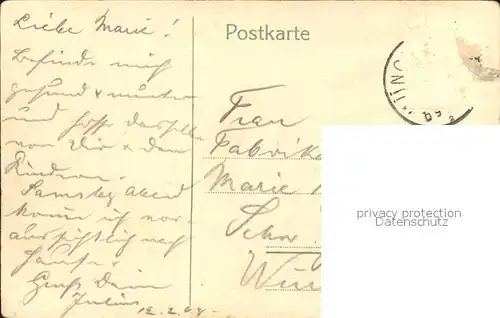 Liebe Marie!
Befinde mich
gesund & munter
und hoffe dasselbe
von Dir & den
Kindern.
Samstag Abend
komm ich vor-
aussichtlich nach
Hause.
Gruß Dein
Julius
Postkarte
Frau
Fabrika
Marie
Schw
privacy protection
Datenschutz